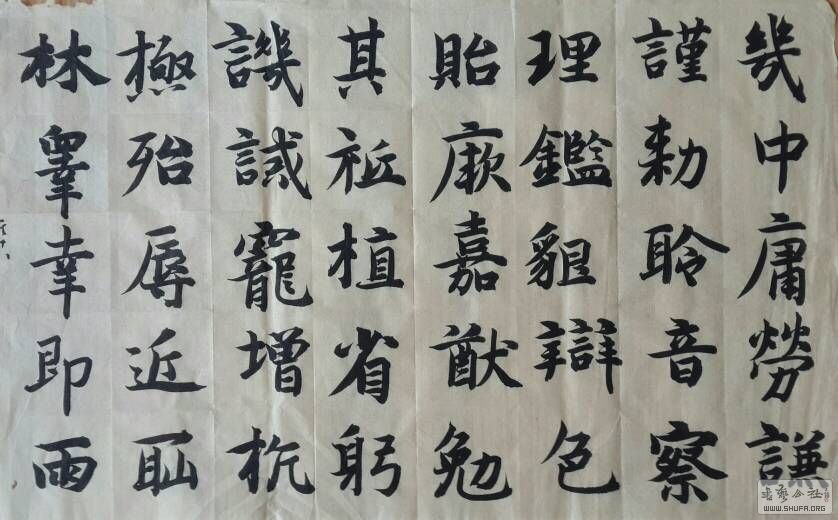 幾中庸勞謙
謹勅聆音察
理鑑貌辯色
貽厥嘉猷勉
其祗植省躬
譏誡寵增抗
極殆辱近恥
林皋幸即兩
書藝公社
WWW.SHUFA.ORG